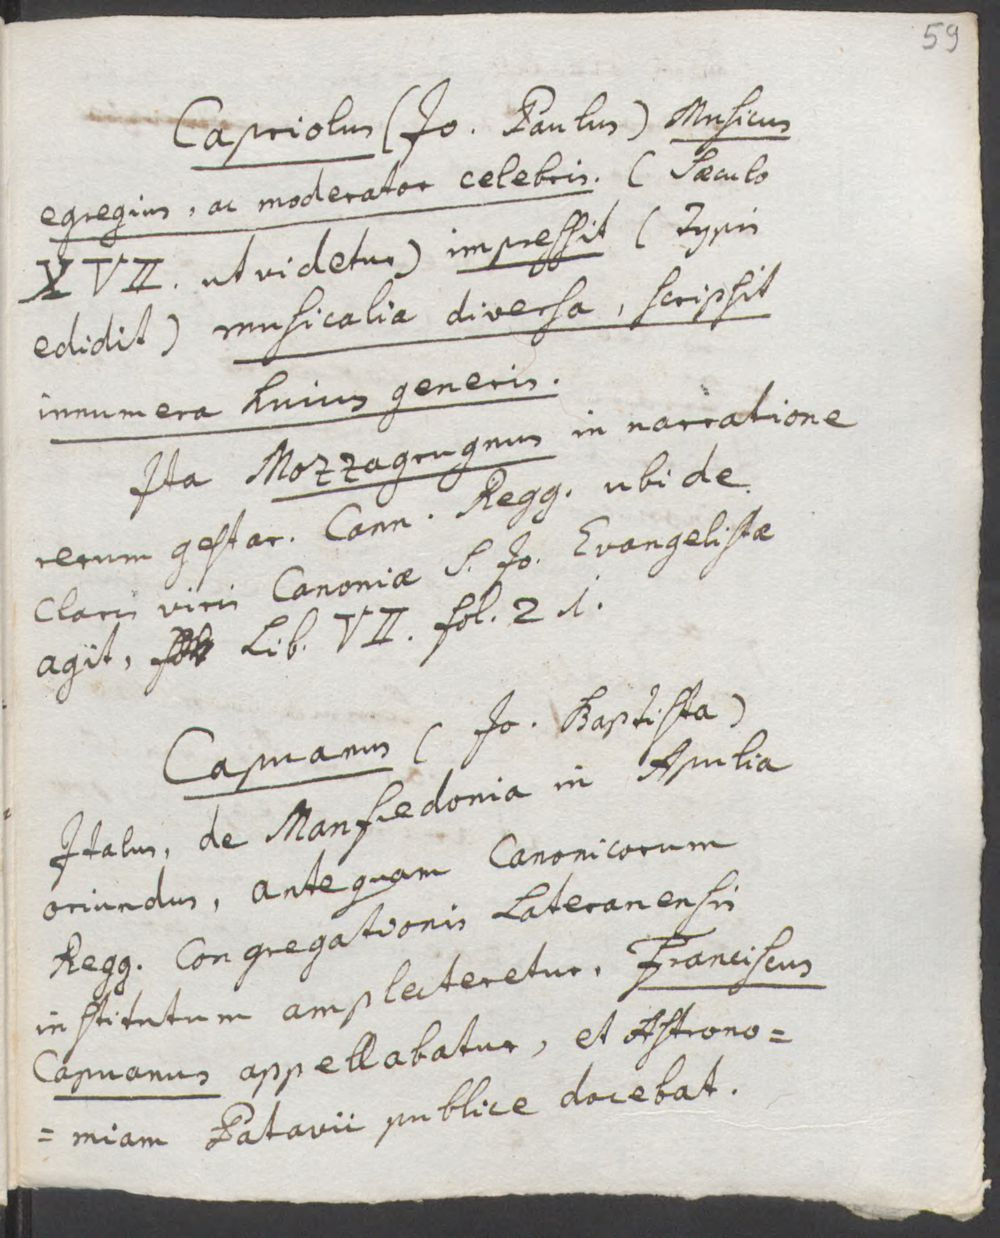 59
Capriolus (Jo. Paulus) Musicus
egregius, ac moderator celebris. (Sæculo
XVII. ut videtur) impressit (Typis
edidit) musicalia diversa, scripsit
innumera huius generis.
Ita Mozzagrugnus in narratione
rerum gestar. Cann. Regg. ubi de
claris viris Canoniæ S. Jo. Evangelistæ
agit, Lib. VII. fol. 21.
Capuanus (Jo. Baptista)
Italus, de Manfredonia in Apulia
oriundus, antequam Canonicorum
Regg. Congregationis Lateranensis
institutum amplecteretur, Franciscus
Capuanus appellabatur, et Astrono=
=miam Patavii publice docebat.